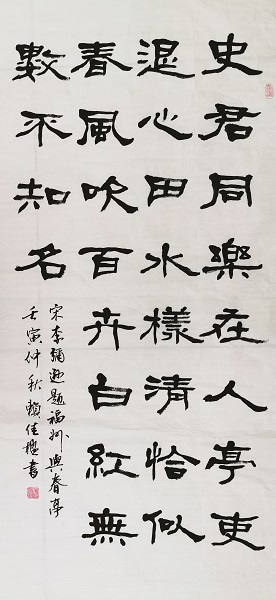 史君同樂在人亭吏
退心田水樣清恰似
春風吹百卉白紅無
數不知名
宋李彌遜題福州與春亭
壬寅仲秋賴佳㰖書